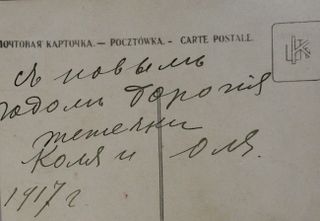 ПОЧТОВАЯ КАРТОЧКА. — POCZTÓWKA. — CARTE POSTALE.
съ новымъ
годомъ дорогія
тетечки
Коля и Оля.
1917 г